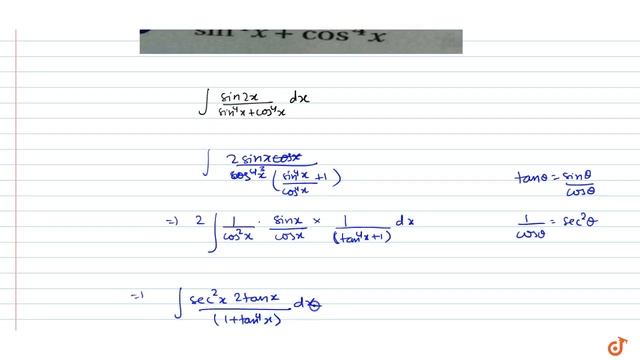 sin⁴x + cos⁴x
∫ sin2x / (sin⁴x + cos⁴x) dx
∫ 2 sinx cosx / cos⁴x (sin⁴x / cos⁴x + 1)
tanθ = sinθ / cosθ
⇒ 2 ∫ 1 / cos²x · sinx / cosx × 1 / (tan⁴x + 1) dx
1 / cosθ = sec²θ
=1 ∫ sec²x 2tanx / (1 + tan⁴x) dx